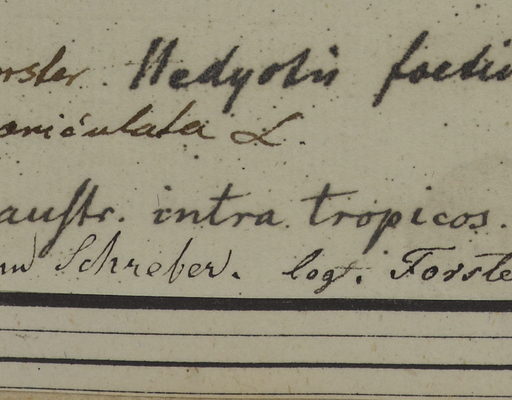 orster. Hedyotis foetid
aniculata L.
austr. intra tropicos.
Schreber. leg. Forste